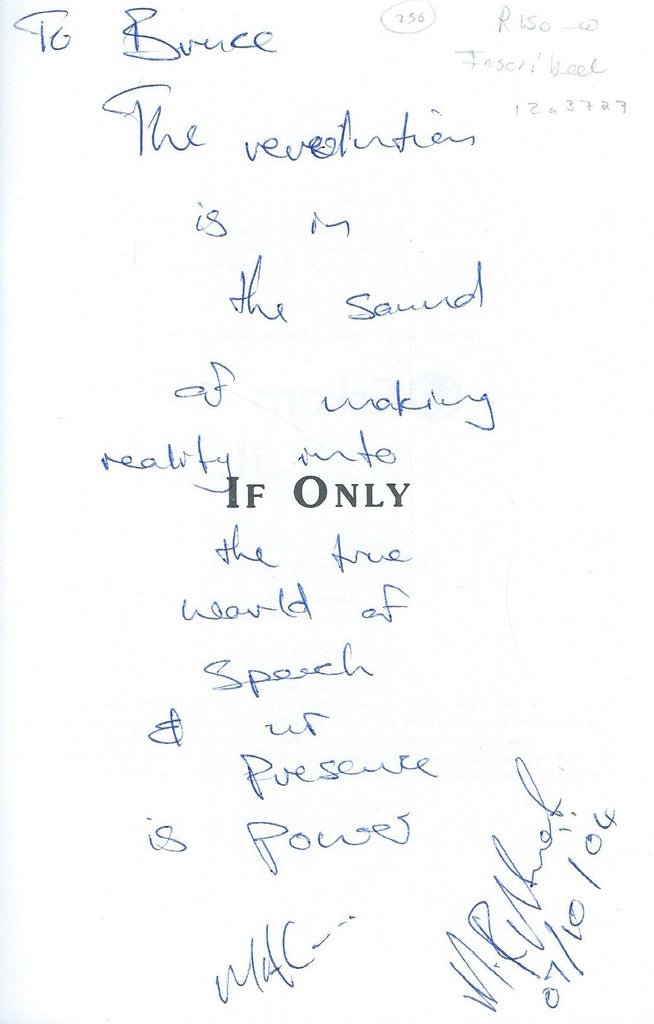 To Bruce
256
R150-00
Inscribed
12a3727
The revolution
is in
the sound
of making
reality into
IF ONLY
the true
world of
Speech
& it
Presence
is power
07/10/04